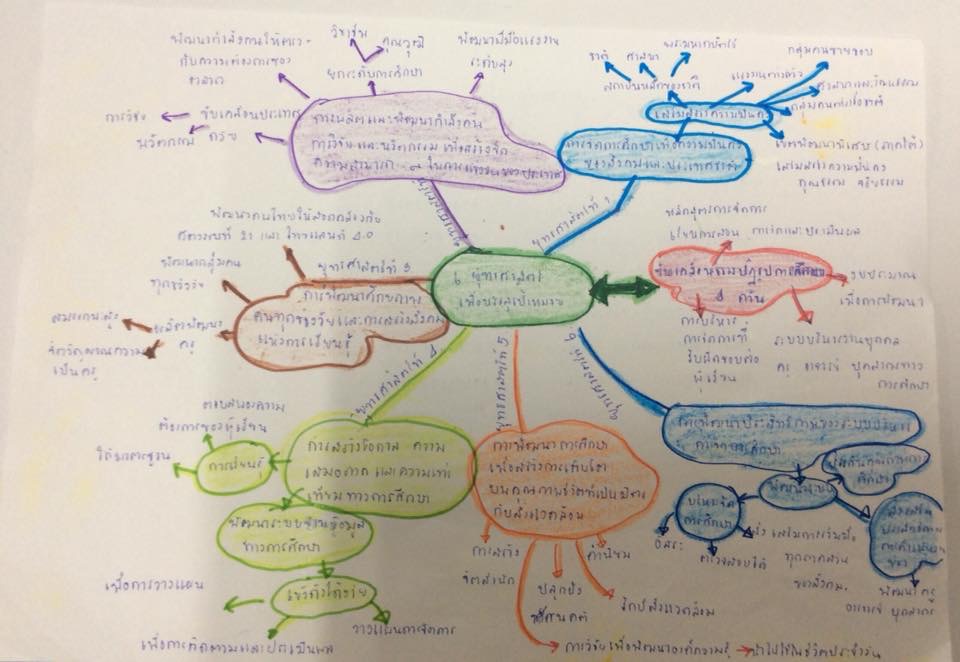 พัฒนากำลังคนให้ตรง
กับความต้องการของ
ตลาด
วิชาชีพ
คุณวุฒิ
ยกระดับการศึกษา
พัฒนาฝีมือแรงงาน
ระดับสูง
การวิจัย
นวัตกรรม
ขับเคลื่อนประเทศ
การผลิตและพัฒนากำลังคน
การวิจัย และนวัตกรรม เพื่อสร้างขีด
ความสามารถในการแข่งขันของประเทศ
ยุทธศาสตร์ที่ 2
ชาติ
ศาสนา
พระมหากษัตริย์
สถาบันหลักของชาติ
แรงงานต่างด้าว
กลุ่มคนชายขอบ
ศาสนาและวัฒนธรรม
เสริมสร้างความมั่นคง
เขตพัฒนาพิเศษ (ภาคใต้)
เสริมสร้างความมั่นคง
คุณธรรม จริยธรรม
การจัดการศึกษาเพื่อความมั่นคง
ของสังคมและประเทศชาติ
ยุทธศาสตร์ที่ 1
พัฒนาคนไทยให้สอดคล้องกับ
ศตวรรษที่ 21 และ ไทยแลนด์ 4.0
พัฒนากลุ่มคน
ทุกช่วงวัย
ยุทธศาสตร์ที่ 3
การพัฒนาศักยภาพ
คนทุกช่วงวัย และการสร้างสังคม
แห่งการเรียนรู้
ผลิตพัฒนา
ครู
สมรรถนะสูง
จิตวิญญาณความ
เป็นครู
6 ยุทธศาสตร์
เพื่อบรรลุเป้าหมาย
ขับเคลื่อนตามปฏิรูปการศึกษา
4 ด้าน
หลักสูตรการจัดการ
เรียนการสอน การวัดและประเมินผล
งบประมาณ
เพื่อการพัฒนา
การบริหาร
การจัดการที่
รับผิดชอบต่อ
ผู้เรียน
ระบบบริหารงานบุคคล
ครู อาจารย์ บุคลากรทาง
การศึกษา
ยุทธศาสตร์ที่ 4
การสร้างโอกาส ความ
เสมอภาค และความเท่า
เทียมทางการศึกษา
การเรียนรู้
ตอบสนองความ
ต้องการของผู้เรียน
พัฒนาระบบฐานข้อมูล
ทางการศึกษา
เข้าถึงได้ง่าย
เพื่อการวางแผน
วางแผนการจัดการ
เพื่อการติดตามและประเมินผล
ยุทธศาสตร์ที่ 5
การพัฒนาการศึกษา
เพื่อสร้างการเติบโต
บนคุณภาพชีวิตที่เป็นมิตร
กับสิ่งแวดล้อม
การสร้าง
จิตสำนึก
ปลูกฝัง
ทัศนคติ
ค่านิยม
รักษ์สิ่งแวดล้อม
การวิจัยเพื่อพัฒนาองค์ความรู้
นำไปใช้ในชีวิตประจำวัน
ยุทธศาสตร์ที่ 6
การพัฒนาประสิทธิภาพของระบบบริหาร
จัดการศึกษา
พัฒนาระบบ
บริหารจัด
การศึกษา
อิสระ
ตรวจสอบได้
ส่งเสริมการร่วมมือ
ทุกภาคส่วน
ของสังคม
พัฒนา ครู
อาจารย์ บุคลากร